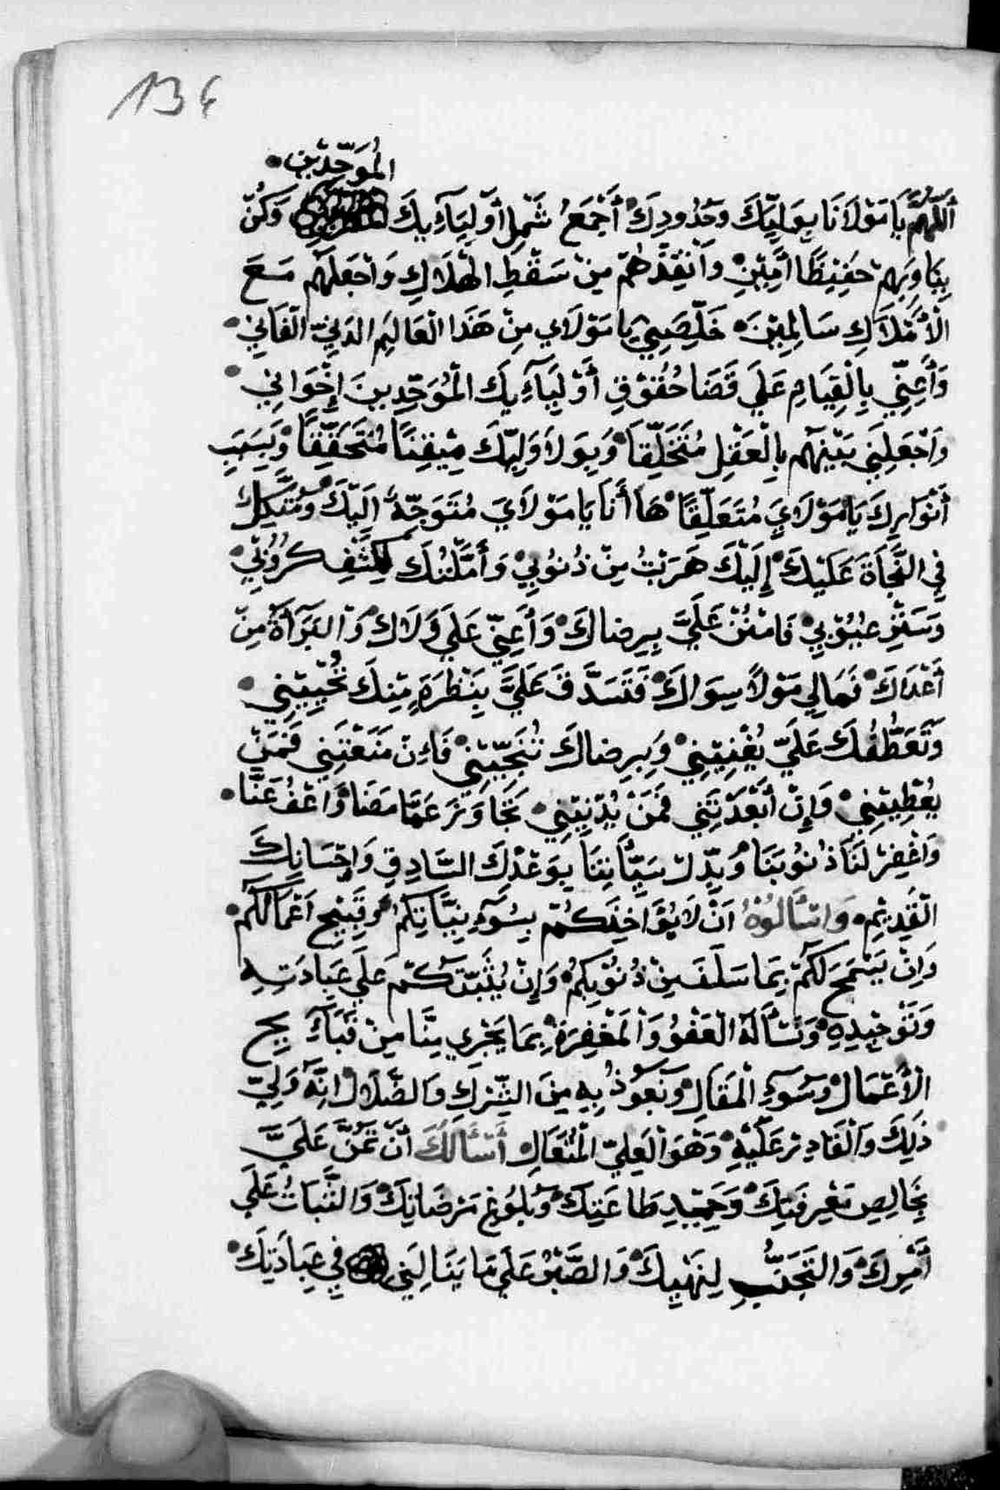 136
الْمُوَحِّدِينَ
أَللَّهُمَّ يَا مَوْلَانَا بِوَلِيِّكَ وَحُدُودِكَ أَجْمَعُ شَمْلِ أَوْلِيَآءِيكَ وَكُنْ
بِنَا وَبِهِمْ حَفِيظًا أَمِيْنِ وَانْقِذْهُمْ مِنْ سَقْطِ الْهَلَاكِ وَاجْعَلْهُمْ مَعَ
الْأَمْلَاكِ سَالِمِيْنَ خَلِّصْنِيْ يَا مَوْلَاي مِنْ هَذَا الْعَالَمِ الدَنِيِّ الْفَانِيْ
وَأَعِنِّي بِالْقِيَامِ عَلَى قَضَا حُقُوْقِ أَوْلِيَآءِيكَ الْمُوَحِّدِينَ إِخْوَانِي
وَاجْعَلْنِي بَيْنَهُم بِالْعَقْلِ مُتَخَلِّقًا وَبِوَلَا وَلِيِّكَ مِيْقِنًا مُتَحَقِّقًا وَبِسَبَبِ
أَنْوَارِكَ يَا مَوْلَايَ مُتَعَلِّقًا هَا أَنَا يَا مَوْلَايَ مُتَوَجِّهٌ إِلَيْكَ وَمُتَّكِلٌ
فِي النَّجَاةَ عَلَيْكَ إِلَيْكَ هَرَبْتُ مِنْ ذُنُوْبِيْ وَأَمَّلْتُكَ لِكَشْفِ كُرُوْبِيْ
وَسَتْرِ عُيُوْبِيْ فَامْنُنْ عَلَيَّ بِرِضَاكَ وَأَعِنِّي عَلَى وَلَاكَ وَالْبَرَآأَةَ مِنْ
أَعْدَاكَ فَمَالِي مَوْلاً سِوَاكَ فَتَسَدَّقَ عَلَيَّ بِنَظْرَةٍ مِنْكَ تُحْيِيْنِي
وَتَعَطُّفُكَ عَلَيَّ يُغْنِيْنِيْ وَبِرِضَاكَ تُنَجِّيْنِيْ فَاءِنْ مَنَعْتَنِي فَمَنْ
يُعْطِيْنِيْ وَإِنْ أَبْعَدْتَنِي فَمَنْ يُدْنِيْنِيْ تَجَاوَزْ عَمَّا مَضَا وَاعْفُ عَنَّا
وَاغْفِرْ لَنَا ذُنُوْبَنَا وَبَدِّلْ سَيِّآتِنَا بِوَعْدِكَ السَّادِقِ وَإِحْسَانِكَ
الْقَدِيْمِ وَاسْأَلُوْهُ انْ لَا يُؤَاخِذَكُمْ بِسُوْءِ نِيَّاتِكُمْ وَقَبِيْحِ اَعْمَالِكُمْ
وَانْ يَسْمَحَ لَكُمْ بِمَا سَلَفَ مِنْ ذُنُوْبِكُمْ وَاِنْ يُثَبِّتَكُمْ عَلَى عِبَادَتِهِ
وَتَوْحِيْدِهِ وَنَسْأَلَهُ الْعَفْوُ وَالْمَغْفِرَةِ بِمَا يَجْرِي مِنَّا مِنْ قَبَآءِيحِ
الْأَعْمَالِ وَسُوْءِ الْمَقَالِ وَنَعُوْذُ بِهِ مِنَ الشِّرْكِ وَالضَّلَالْ اِنَّهُ وَلِيِّ
ذَلِكَ وَالْقَادِرْ عَلَيْهِ وَهْوَ الْعَلِيِّ الْمُتَعَالِ أَسْأَلَكَ أَنْ تَمُنَّ عَلَيَّ
بِخَالِصِ مَعْرِفَتِكَ وَحَمِيْدِ طَاعَتِكَ وَبُلُوْغِ مَرْضَاتِكَ وَالثَّبَاتُ عَلَى
أَمْرِكَ وَالتَّجَنُّبِ لِنَهْيِكَ وَالصَّبْرُ عَلَى مَا يَنَالُنِي فِي عِبَادَتِكَ